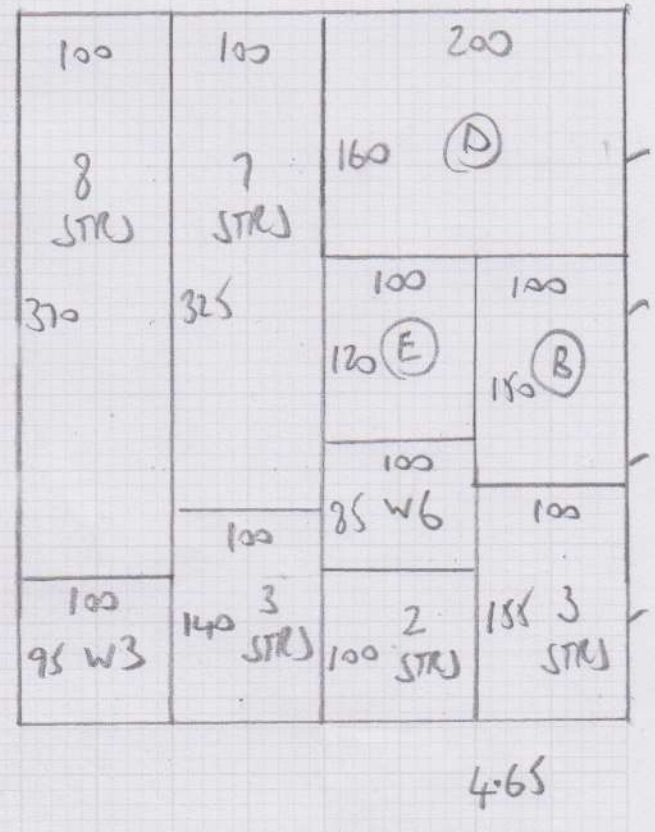 100
8
STRS
370
95 W3
100
100
7
STRS
325
100
140 3
STRS
200
160 D
100
120 E
100
85 W6
2
100 STRS
100
150 B
100
155 3
STRS
4.65